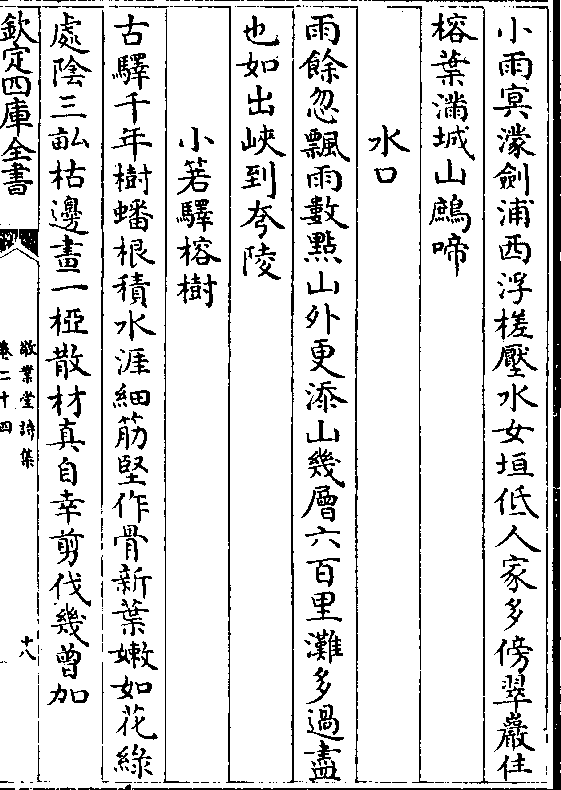 小雨冥濛劍浦西浮槎壓水女垣低人家多傍翠巖住
榕葉滿城山鷓啼
水口
雨餘忽飄雨數點山外更添山幾層六百里灘多過盡
也如出峽到夸陵
小箬驛榕樹
古驛千年樹蟠根積水涯細筋堅作骨新葉嫩如花綠
處陰三畝枯邊畫一椏散材真自幸剪伐幾曾加
欽定四庫全書
敬業堂詩集
卷二十四
十八